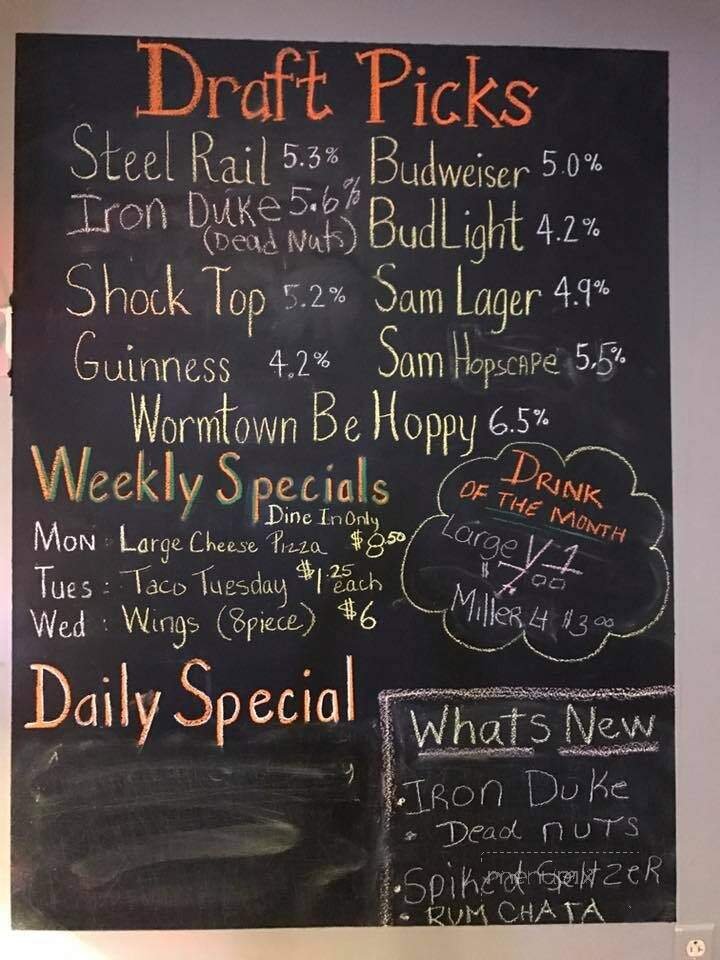 Draft Picks
Steel Rail 5.3%
Iron Duke 5.6%
(Dead Nuts)
Shock Top 5.2%
Guinness 4.2%
Budweiser 5.0%
Bud Light 4.2%
Sam Lager 4.9%
Sam HOPSCAPE 5.5%
Wormtown Be Hoppy 6.5%
Weekly Specials
Dine In Only
Mon : Large Cheese Pizza $8.50
Tues : Taco Tuesday $1.25 each
Wed : Wings (8piece) $6
DRINK
OF THE MONTH
Large V1
$7.00
Miller 4 $3.00
Daily Special
Whats New
• IRON DUKE
• Dead NUTS
• Spiked SeltzeR
• RUM CHATA
menupix